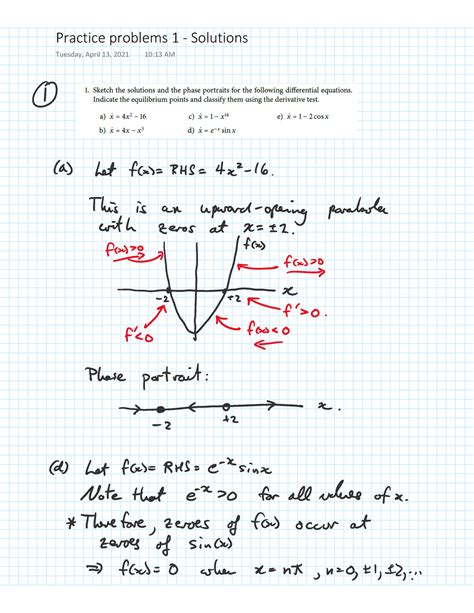 Practice problems 1 - Solutions
Tuesday, April 13, 2021 10:13 AM
①
1. Sketch the solutions and the phase portraits for the following differential equations.
Indicate the equilibrium points and classify them using the derivative test.
a) ẋ = 4x² − 16 c) ẋ = 1 − x¹⁴ e) ẋ = 1 − 2 cos x
b) ẋ = 4x − x³ d) ẋ = e⁻ˣ sin x
(a) Let f(x) = RHS = 4x² - 16.
This is an upward-opening parabola
with zeros at x = ±2.
f(x)>0 f(x)
f(x)>0
-2 +2 x
f'>0.
f'<0 f(x)<0
Phase portrait:
-2 +2 x.
(d) Let f(x) = RHS = e⁻ˣ sinx
Note that e⁻ˣ > 0 for all values of x.
* Therefore, zeroes of f(x) occur at
zeroes of sin(x)
⇒ f(x) = 0 when x = nπ, n=0, ±1, ±2, ...